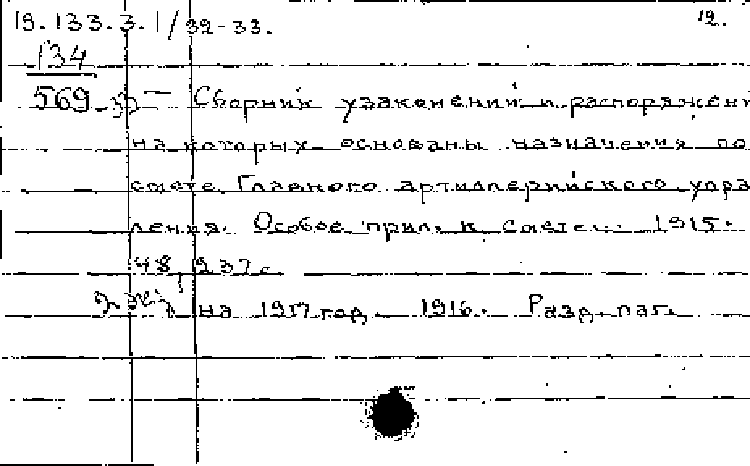 18.133.3.1/32-33. 12.
134
569-33 — Сборник узаконений и распоряжен
на которых основаны назначения по
смете Главного артиллерийского упра
ления. Особое прил. к смете... 1915.
48, 237 с.
2 экз. на 1917 год. 1916. Разд. паг.